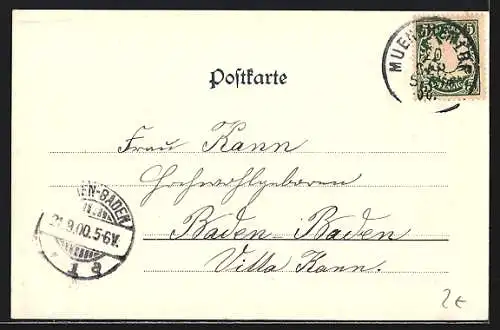 MUENCHEN
5
Postkarte
Frau Kann
Hochwohlgeboren
EN-BADEN
21.9.00.5-6V.
1 a
Baden-Baden
Villa Kann.
2€